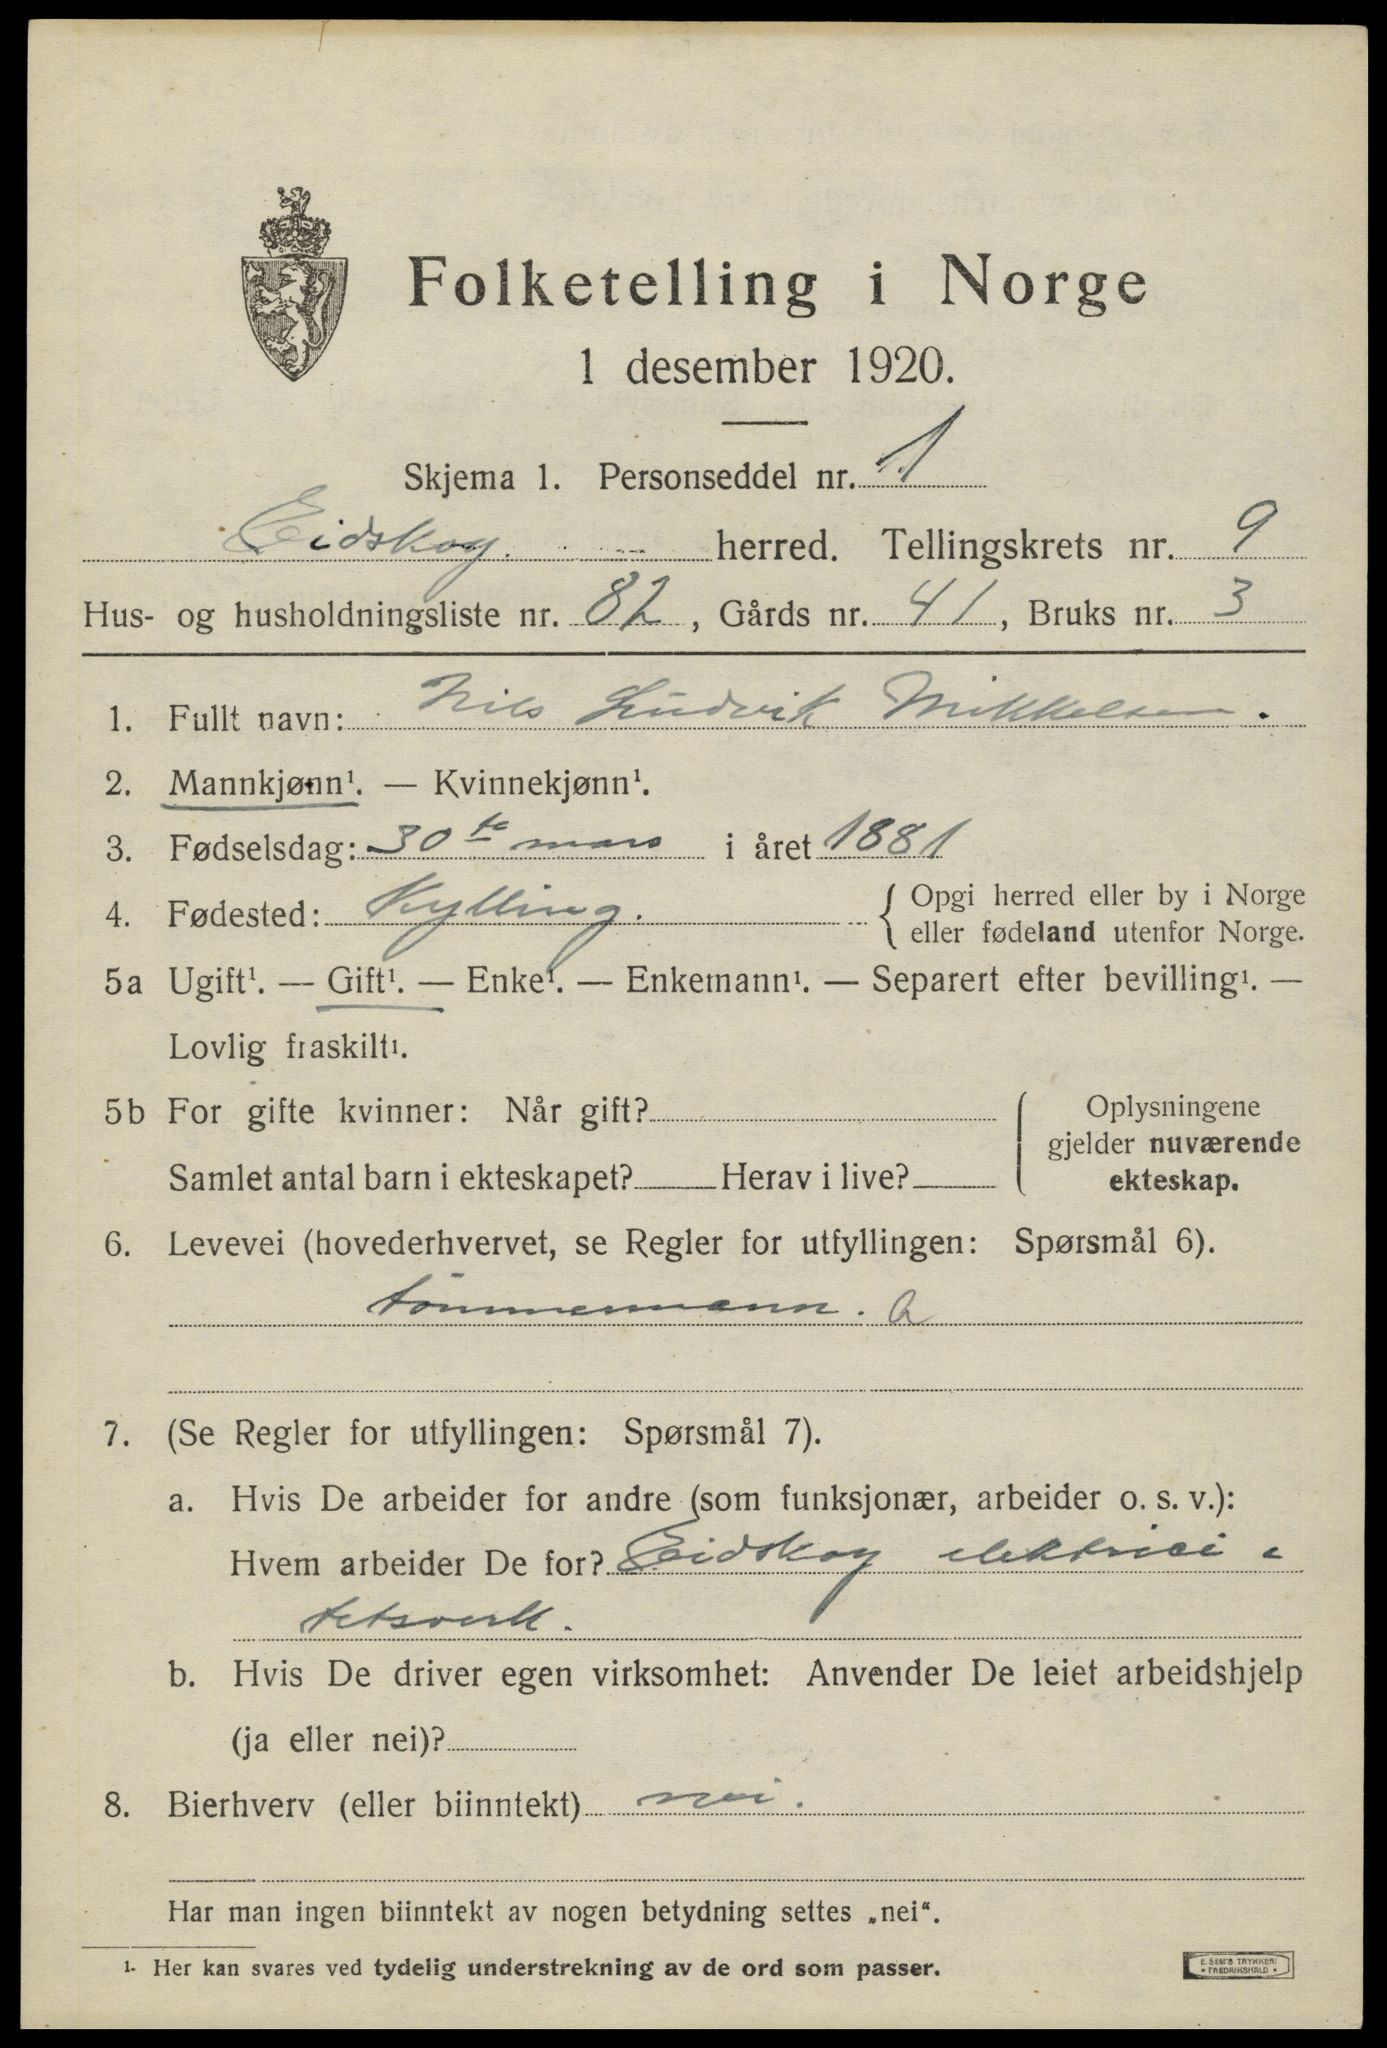 Folketelling i Norge
1 desember 1920.
Skjema 1. Personseddel nr. 1
Eidskog. herred. Tellingskrets nr. 9
Hus- og husholdningsliste nr. 82, Gårds nr. 41, Bruks nr. 3
1. Fullt navn: Nils Ludvik Mikkelsen.
2. Mannkjønn¹. — Kvinnekjønn¹.
3. Fødselsdag: 30te mars i året 1881
4. Fødested: Kylling. { Opgi herred eller by i Norge
eller fødeland utenfor Norge.
5a Ugift¹. — Gift¹. — Enke¹. — Enkemann¹. — Separert efter bevilling¹. —
Lovlig fraskilt¹.
5b For gifte kvinner: Når gift? Oplysningene
gjelder nuværende
Samlet antal barn i ekteskapet? Herav i live? ekteskap.
6. Levevei (hovederhvervet, se Regler for utfyllingen: Spørsmål 6).
tömmermann. a
7. (Se Regler for utfyllingen: Spørsmål 7).
a. Hvis De arbeider for andre (som funksjonær, arbeider o. s. v.):
Hvem arbeider De for? Eidskog elektrici-
tetsverk.
b. Hvis De driver egen virksomhet: Anvender De leiet arbeidshjelp
(ja eller nei)?
8. Bierhverv (eller biinntekt) nei.
Har man ingen biinntekt av nogen betydning settes „nei“.
1. Her kan svares ved tydelig understrekning av de ord som passer.
E. SEM'S TRYKKERI
• FREDRIKSHALD •